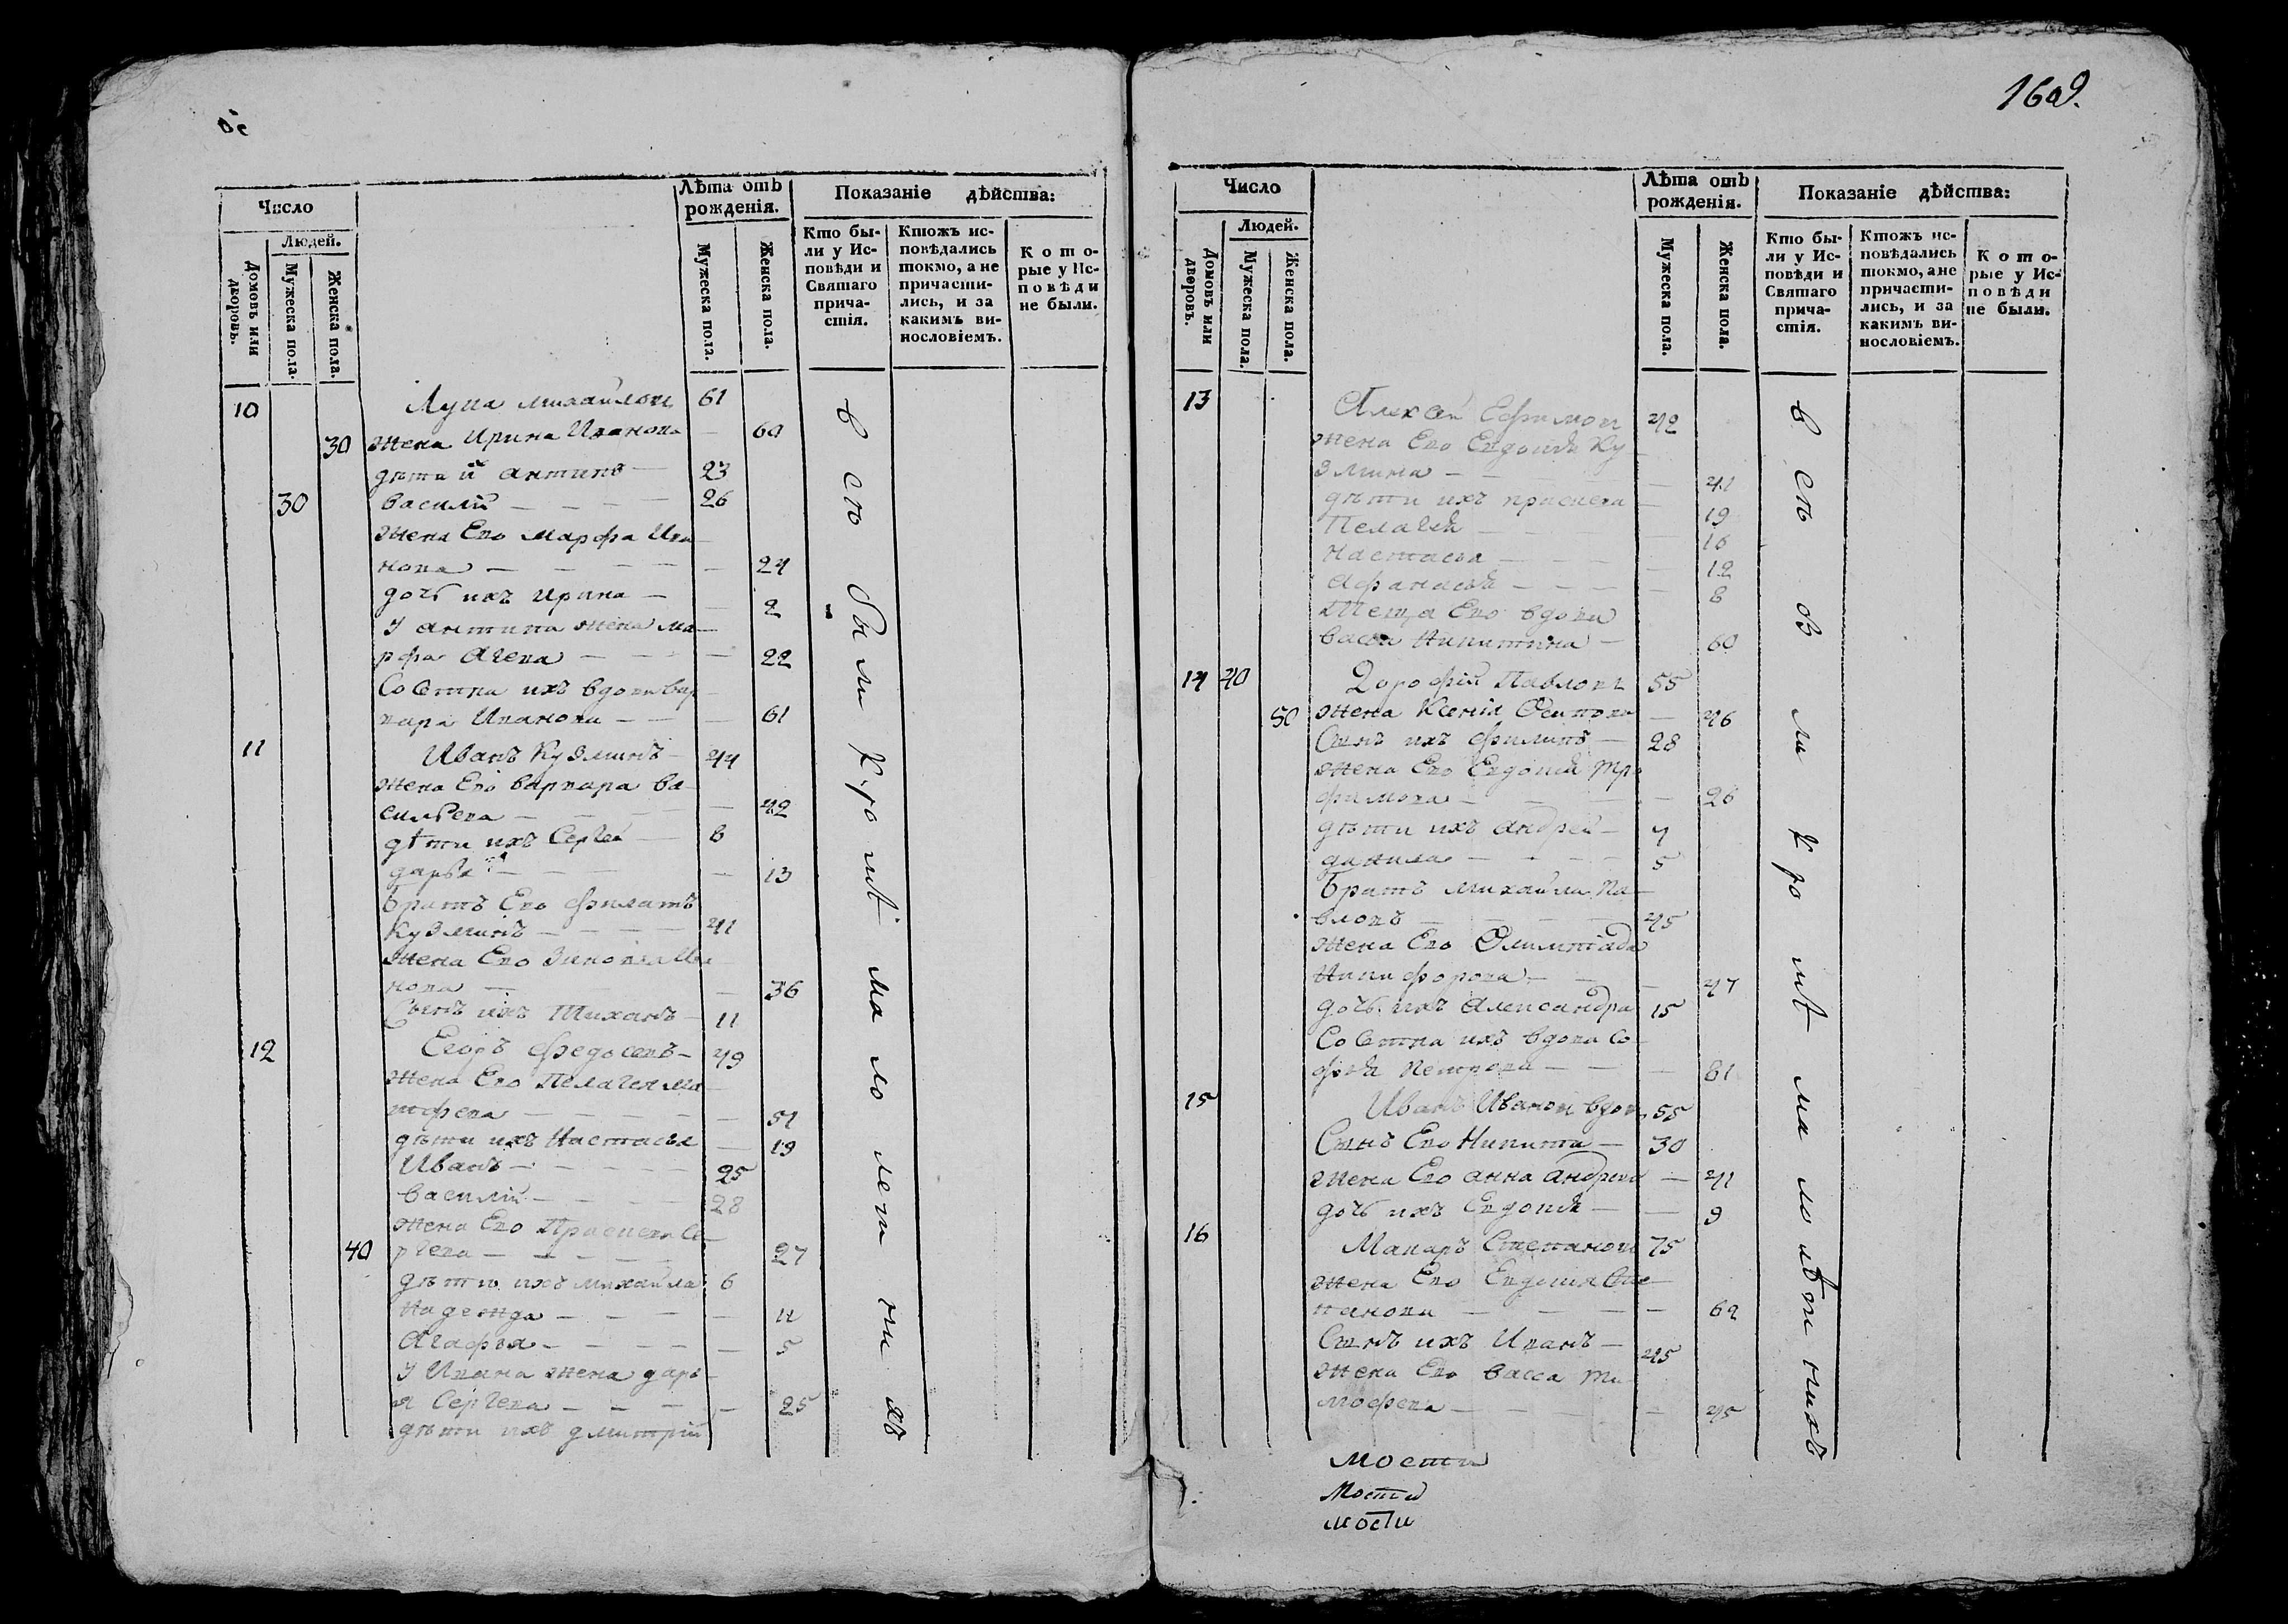 Число
Людей.
Домовъ или дворовъ.
Мужеска пола.
Женска пола.
Лѣта отъ рожденія.
Мужеска пола.
Женска пола.
Показаніе дѣйства:
Кто бы-
ли у Ис-
повѣди и
Святаго
прича-
стія.
Ктожъ ис-
повѣдались
токмо, а не
причасти-
лись, и за
какимъ ви-
нословіемъ.
К о т о-
рые у Ис-
п о в ѣ д и
не были.
10 Лупа михайловъ 61
30 жена Ирина Иванова — 60
дѣти й антипъ — 23
30 василій — 26
жена Его марфа Ива
нова — 24
дочь ихъ ирина — 2
у антипа жена ма
рфа Агева — 22
вдова вар
вара Иванова — 61
11 Иванъ Кузминъ 44
жена Его варвара ва
сильева — 42
дѣти ихъ Сергей — 8
дарья — 13
братъ Его филатъ
Кузминъ — 41
жена Его Зиновья Ива
нова — 36
Сынъ ихъ Тиханъ — 11
12 Егоръ федосевъ — 49
жена Его Пелагея ма
тфева — 51
дѣти ихъ Настасья — 19
Иванъ — 25
василій — 28
жена Его Прасковя Се
40 ргева — 27
дѣти ихъ михайла 6
Надежда — 11
Агафья — 5
у Ивана жена дарь
я Сергева — 25
дѣти ихъ дмитрій
всѣ были кромѣ малолетнихъ
169.
Число
Людей.
Домовъ или дворовъ.
Мужеска пола.
Женска пола.
Лѣта отъ рожденія.
Мужеска пола.
Женска пола.
Показаніе дѣйства:
Кто бы-
ли у Ис-
повѣди и
Святаго
прича-
стія.
Ктожъ ис-
повѣдались
токмо, а не
причасти-
лись, и за
какимъ ви-
нословіемъ.
К о т о-
рые у Ис-
п о в ѣ д и
не были.
13 Алексей Ефимовъ 42
жена Его Евдокія Ку
змина — 41
дѣти ихъ — 19
Пелагея — 16
настасья — 12
афанасья — 8
теща Его вдова
васса Никитина — 60
14 40 Дорофій Павловъ 55
50 жена Ксенія Осипова — 46
Сынъ ихъ филипъ — 28
жена Его Евдокія Тро
фимова — 26
дѣти ихъ андрей — 7
данила — 5
братъ михайла Па
вловъ — 45
жена Его Олимпіада
Никифорова — 47
дочь ихъ Александра 15
вдова Со
фья Петрова — 81
15 Иванъ Ивановъ вдов 55
Сынъ Его Никита — 30
жена Его анна андрева — 41
дочь ихъ Евдокія — 9
16 Макаръ Степановъ 75
жена Его Евдокия Сте
панова — 62
Сынъ ихъ Иванъ — 45
жена Его васса Ти
мофева — 45
всѣ были кромѣ малолѣтнихъ
мости
Мости
мости